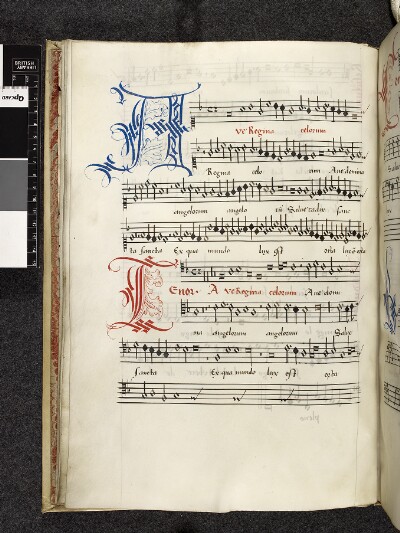 BRITISH
A ve Regina celorum
Regina celo rum Aue domina
angelorum angelo rū Salue radix sanc
ta sancta Ex qua mundo lux est orta
Tenor A ve Regina celorum Aue domi
na angelorum angelorum Salue
sancta Ex qua mundo lux est orta